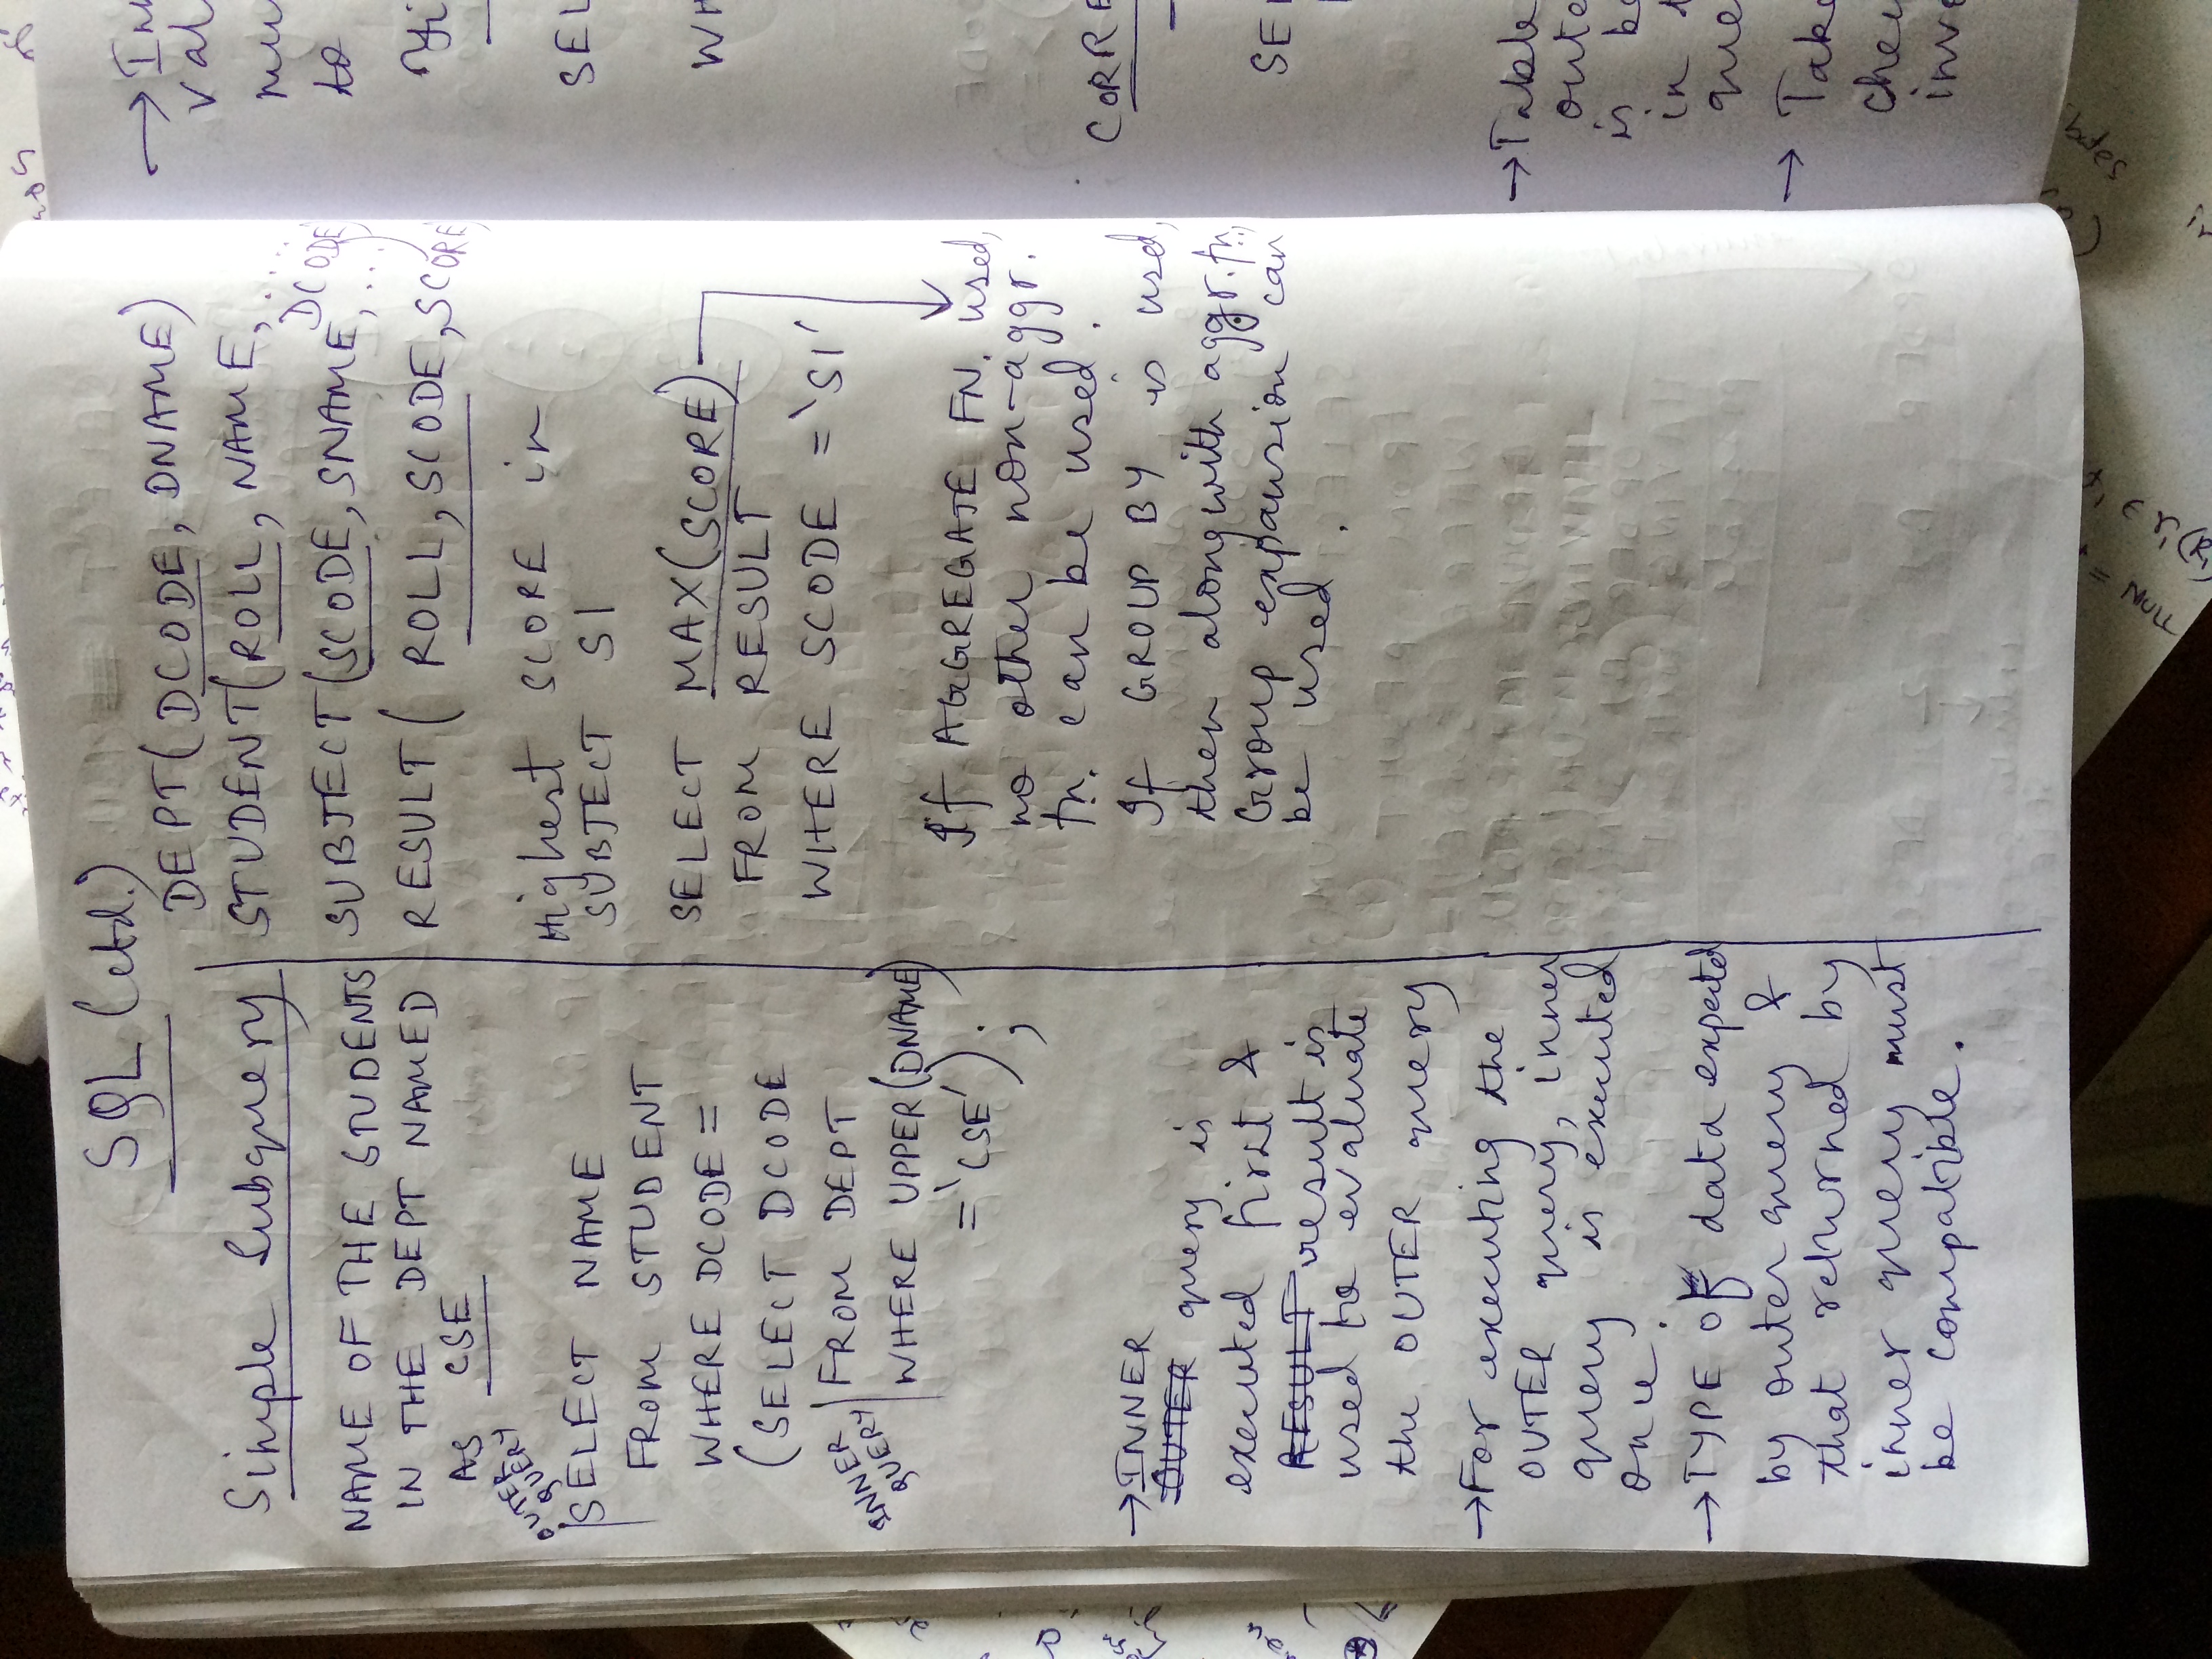 SQL (ctd.)
Simple Subquery
NAME OF THE STUDENTS
IN THE DEPT NAMED
AS CSE
OUTER
QUERY
SELECT NAME
FROM STUDENT
WHERE DCODE =
(SELECT DCODE
INNER
QUERY
FROM DEPT
WHERE UPPER(DNAME)
= 'CSE');
→ INNER
OUTER query is
executed first &
RESULT result is
used to evaluate
the OUTER query
→ For executing the
OUTER query, inner
query is executed
once.
→ TYPE OF data expected
by outer query &
that returned by
inner query must
be compatible.
DEPT(DCODE, DNAME)
STUDENT(ROLL, NAME, ...
DCODE)
SUBJECT(SCODE, SNAME, ...)
RESULT( ROLL, SCODE, SCORE)
Highest SCORE in
SUBJECT S1
SELECT MAX(SCORE)
FROM RESULT
WHERE SCODE = 'S1'
If AGGREGATE FN. used,
no other non-aggr.
fn. can be used.
If GROUP BY is used,
then alongwith aggr. fn.,
Group expansion can
be used.
→
to
SEL
WH
CORRE
SEL
→ Table
oute
is be
in t
que
→ Take
inv